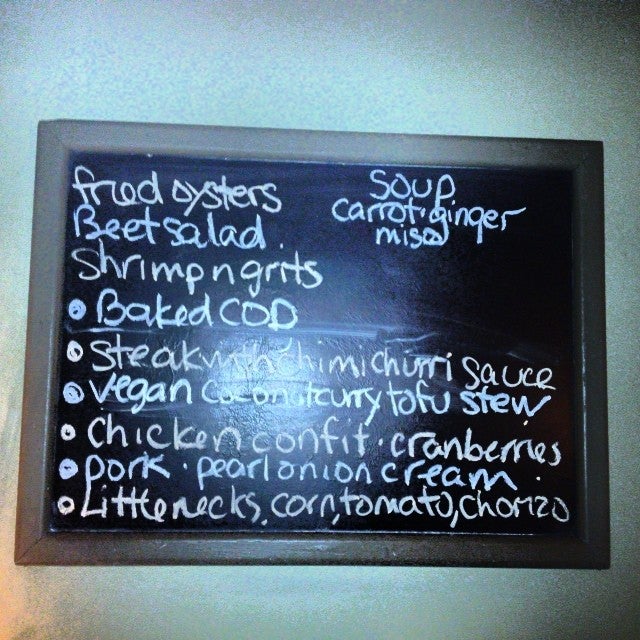 fried oysters
Beet salad.
Shrimp n grits
Baked COD
Steak with chimichurri sauce
vegan coconut curry tofu stew
chicken confit · cranberries
pork · pearl onion cream.
Littlenecks, corn, tomato, chorizo
SOUP
carrot · ginger
miso